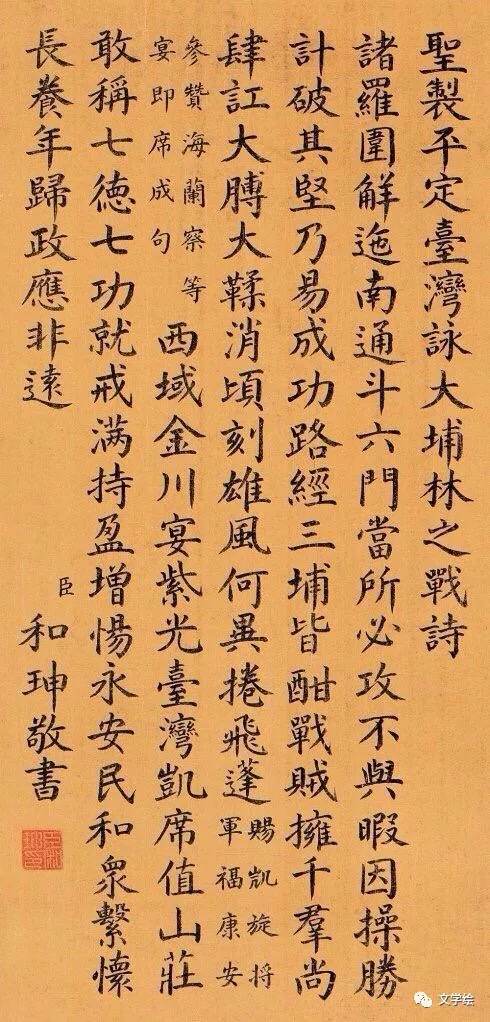 聖製平定臺灣詠大埔林之戰詩
諸羅圍解迤南通斗六門當所必攻不與暇因操勝
計破其堅乃易成功路經三埔皆酣戰賊擁千羣尚
肆訌大膊大鞣消頃刻雄風何異捲飛蓬賜凱旋将
軍福康安
參贊海蘭察等
宴即席成句
西域金川宴紫光臺灣凱席值山莊
敢稱七德七功就戒满持盈增惕永安民和衆繫懷
長養年歸政應非遠
臣
和珅敬書
文学绘